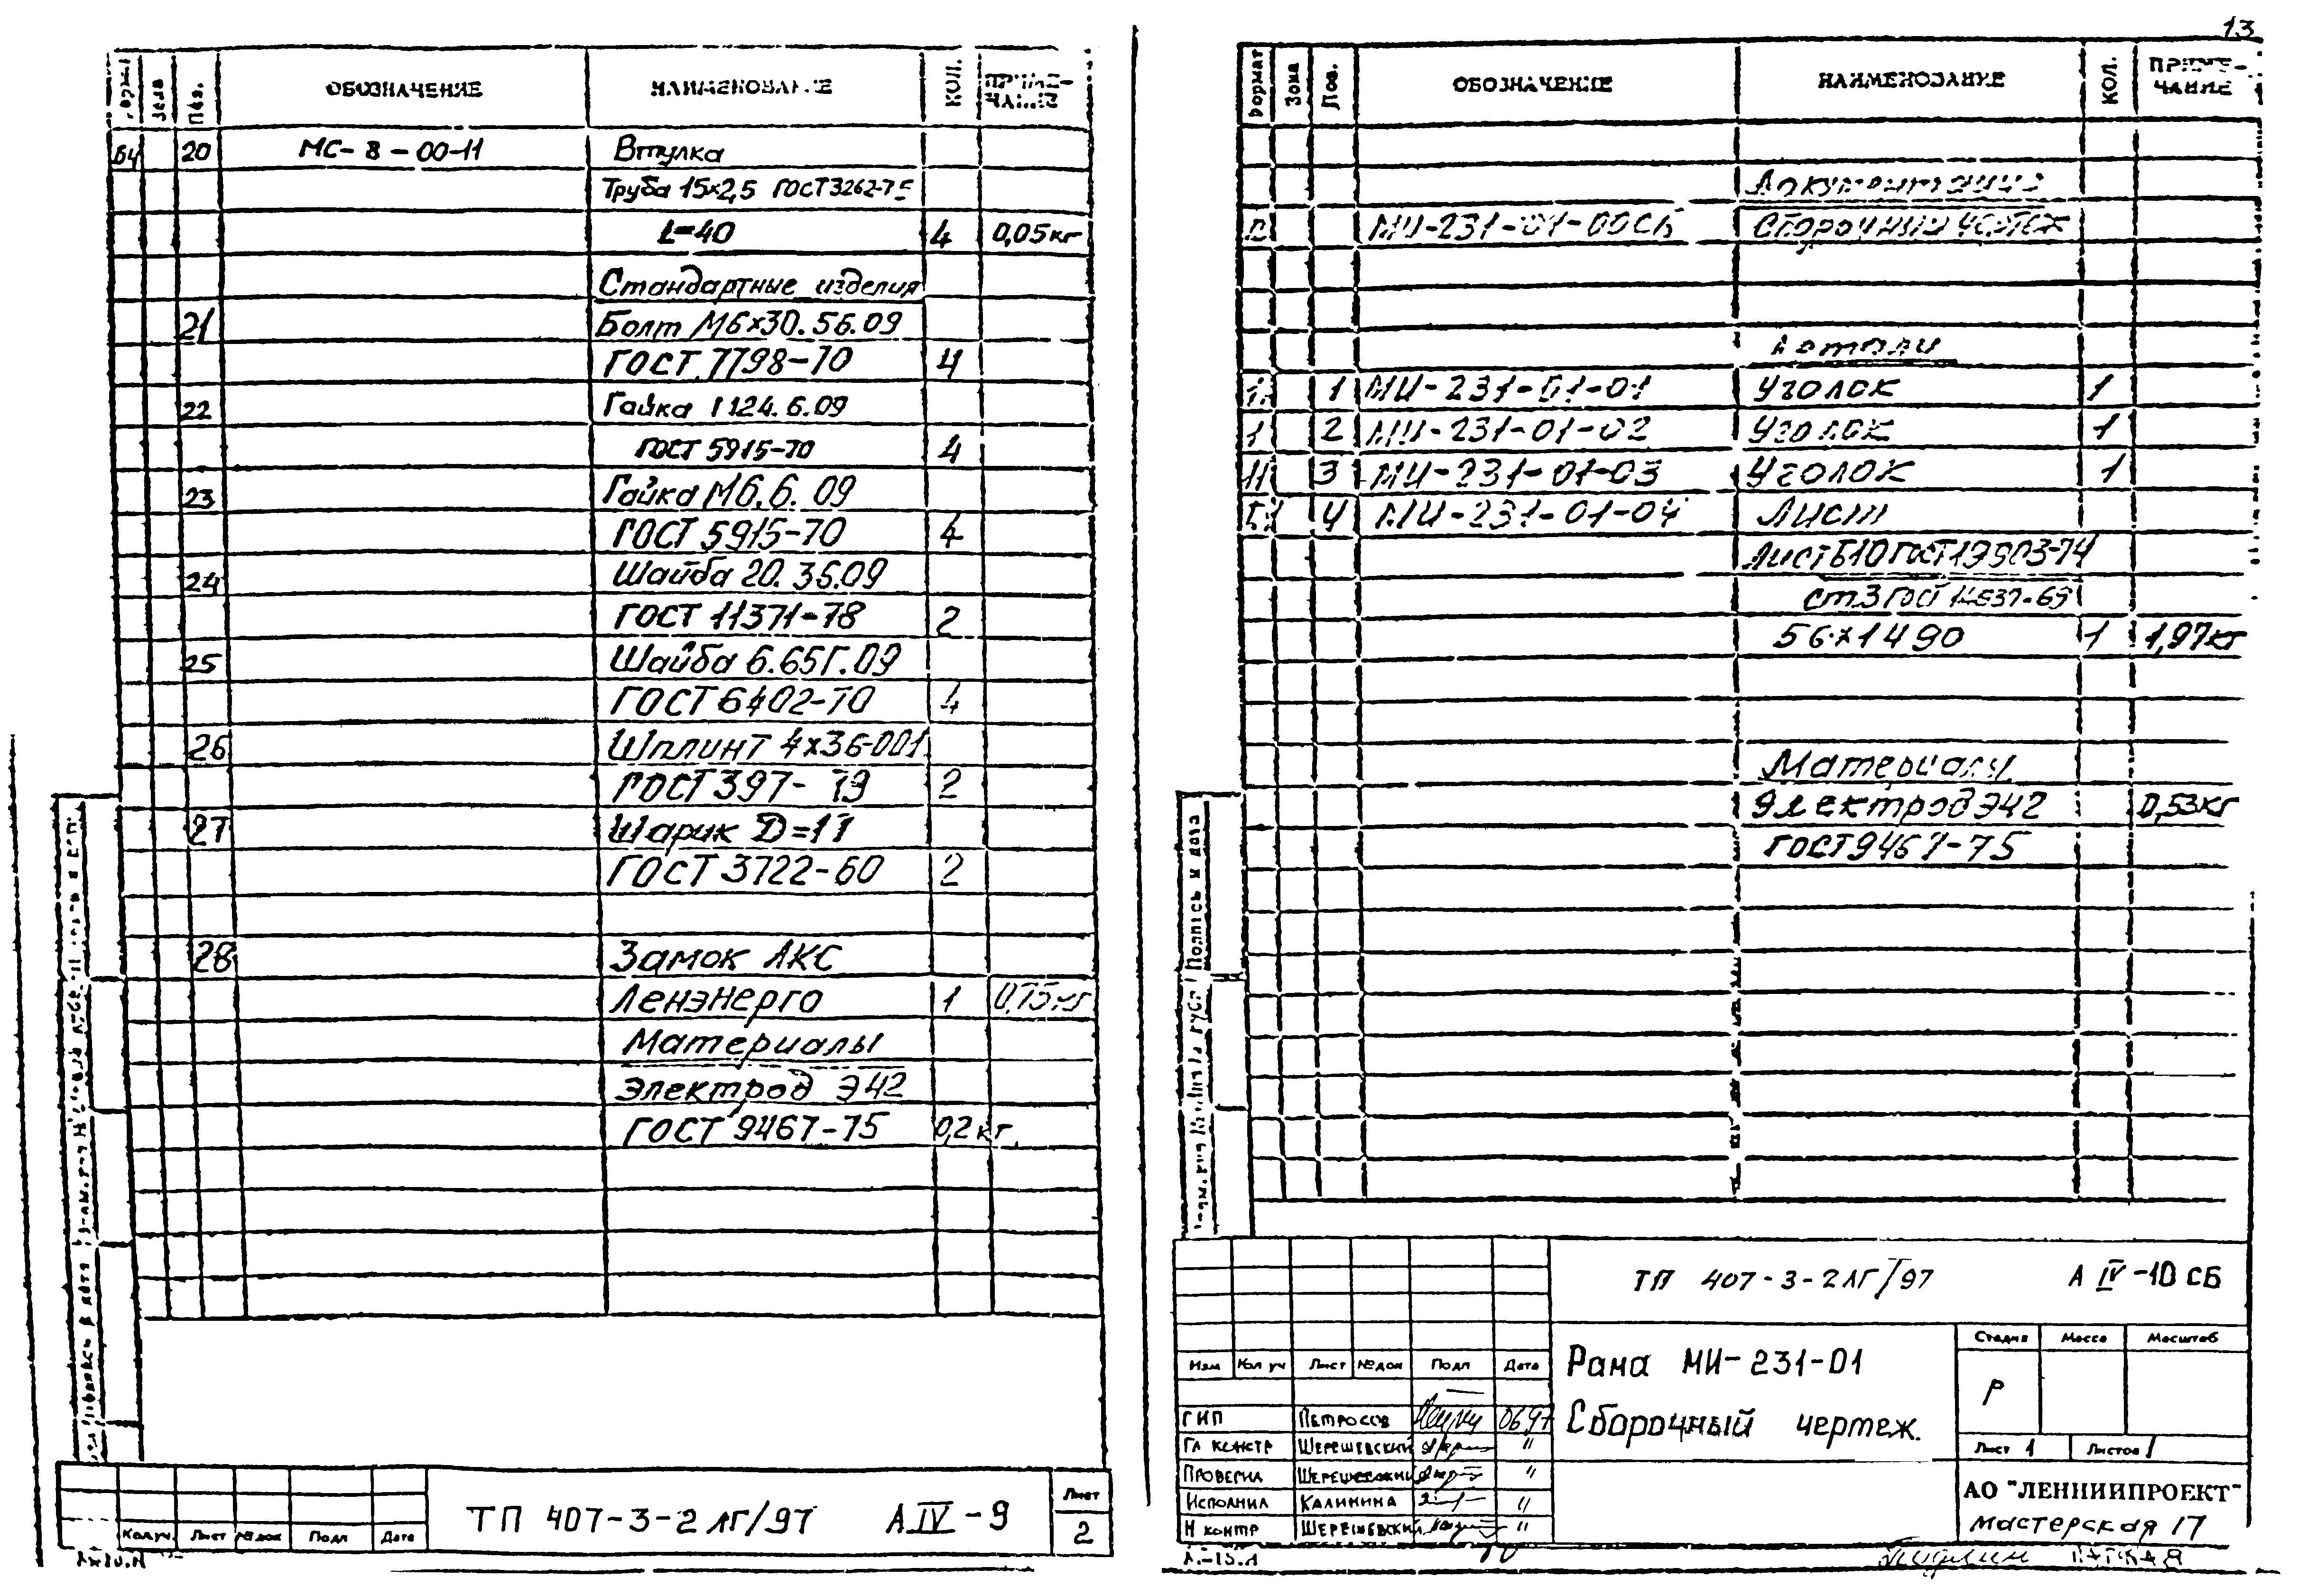 Зона Поз. ОБОЗНАЧЕНИЕ НАИМЕНОВАНИЕ КОЛ. ПРИМЕ-
ЧАНИЕ
БЧ 20 МС-8-00-11 Втулка
Труба 15×2,5 ГОСТ 3262-75
L=40 4 0,05 кг
Стандартные изделия
21 Болт М6×30.56.09
ГОСТ 7798-70 4
22 Гайка 1М24.6.09
ГОСТ 5915-70 4
23 Гайка М6.6.09
ГОСТ 5915-70 4
24 Шайба 20.36.09
ГОСТ 11371-78 2
25 Шайба 6.65Г.09
ГОСТ 6402-70 4
26 Шплинт 4×36-001
ГОСТ 397-79 2
27 Шарик D=11
ГОСТ 3722-60 2
28 Замок АКС
Ленэнерго 1 0,75 кг
Материалы
Электрод Э42
ГОСТ 9467-75 0,2 кг.
Кол.уч. Лист №док Подп Дата
ТП 407-3-2 ЛГ/97 А IV -9
Лист
2
13
Формат Зона Поз. ОБОЗНАЧЕНИЕ НАИМЕНОВАНИЕ КОЛ. ПРИМЕ-
ЧАНИЕ
Документация
МИ-231-01-00СБ Сборочный чертеж
Детали
1 МИ-231-01-01 Уголок 1
2 МИ-231-01-02 Уголок 1
3 МИ-231-01-03 Уголок 1
БЧ 4 МИ-231-01-04 Лист
Лист Б10 ГОСТ 19903-74
ст.3 ГОСТ 14637-69
56×1490 1 1,97 кг
Материалы
Электрод Э42 0,53 кг
ГОСТ 9467-75
Подпись и дата
ТП 407-3-2 ЛГ/97 А IV -10 СБ
Изм Кол уч Лист №док Подп Дата
Рама МИ-231-01
Сборочный чертеж.
Стадия Масса Масштаб
Р
Лист 1 Листов 1
ГИП Петросов 06.97
Гл констр Шерешевский "
Проверил Шерешевский "
Исполнил Калинина "
Н контр Шерешевский "
АО "ЛЕННИИПРОЕКТ"
мастерская 17